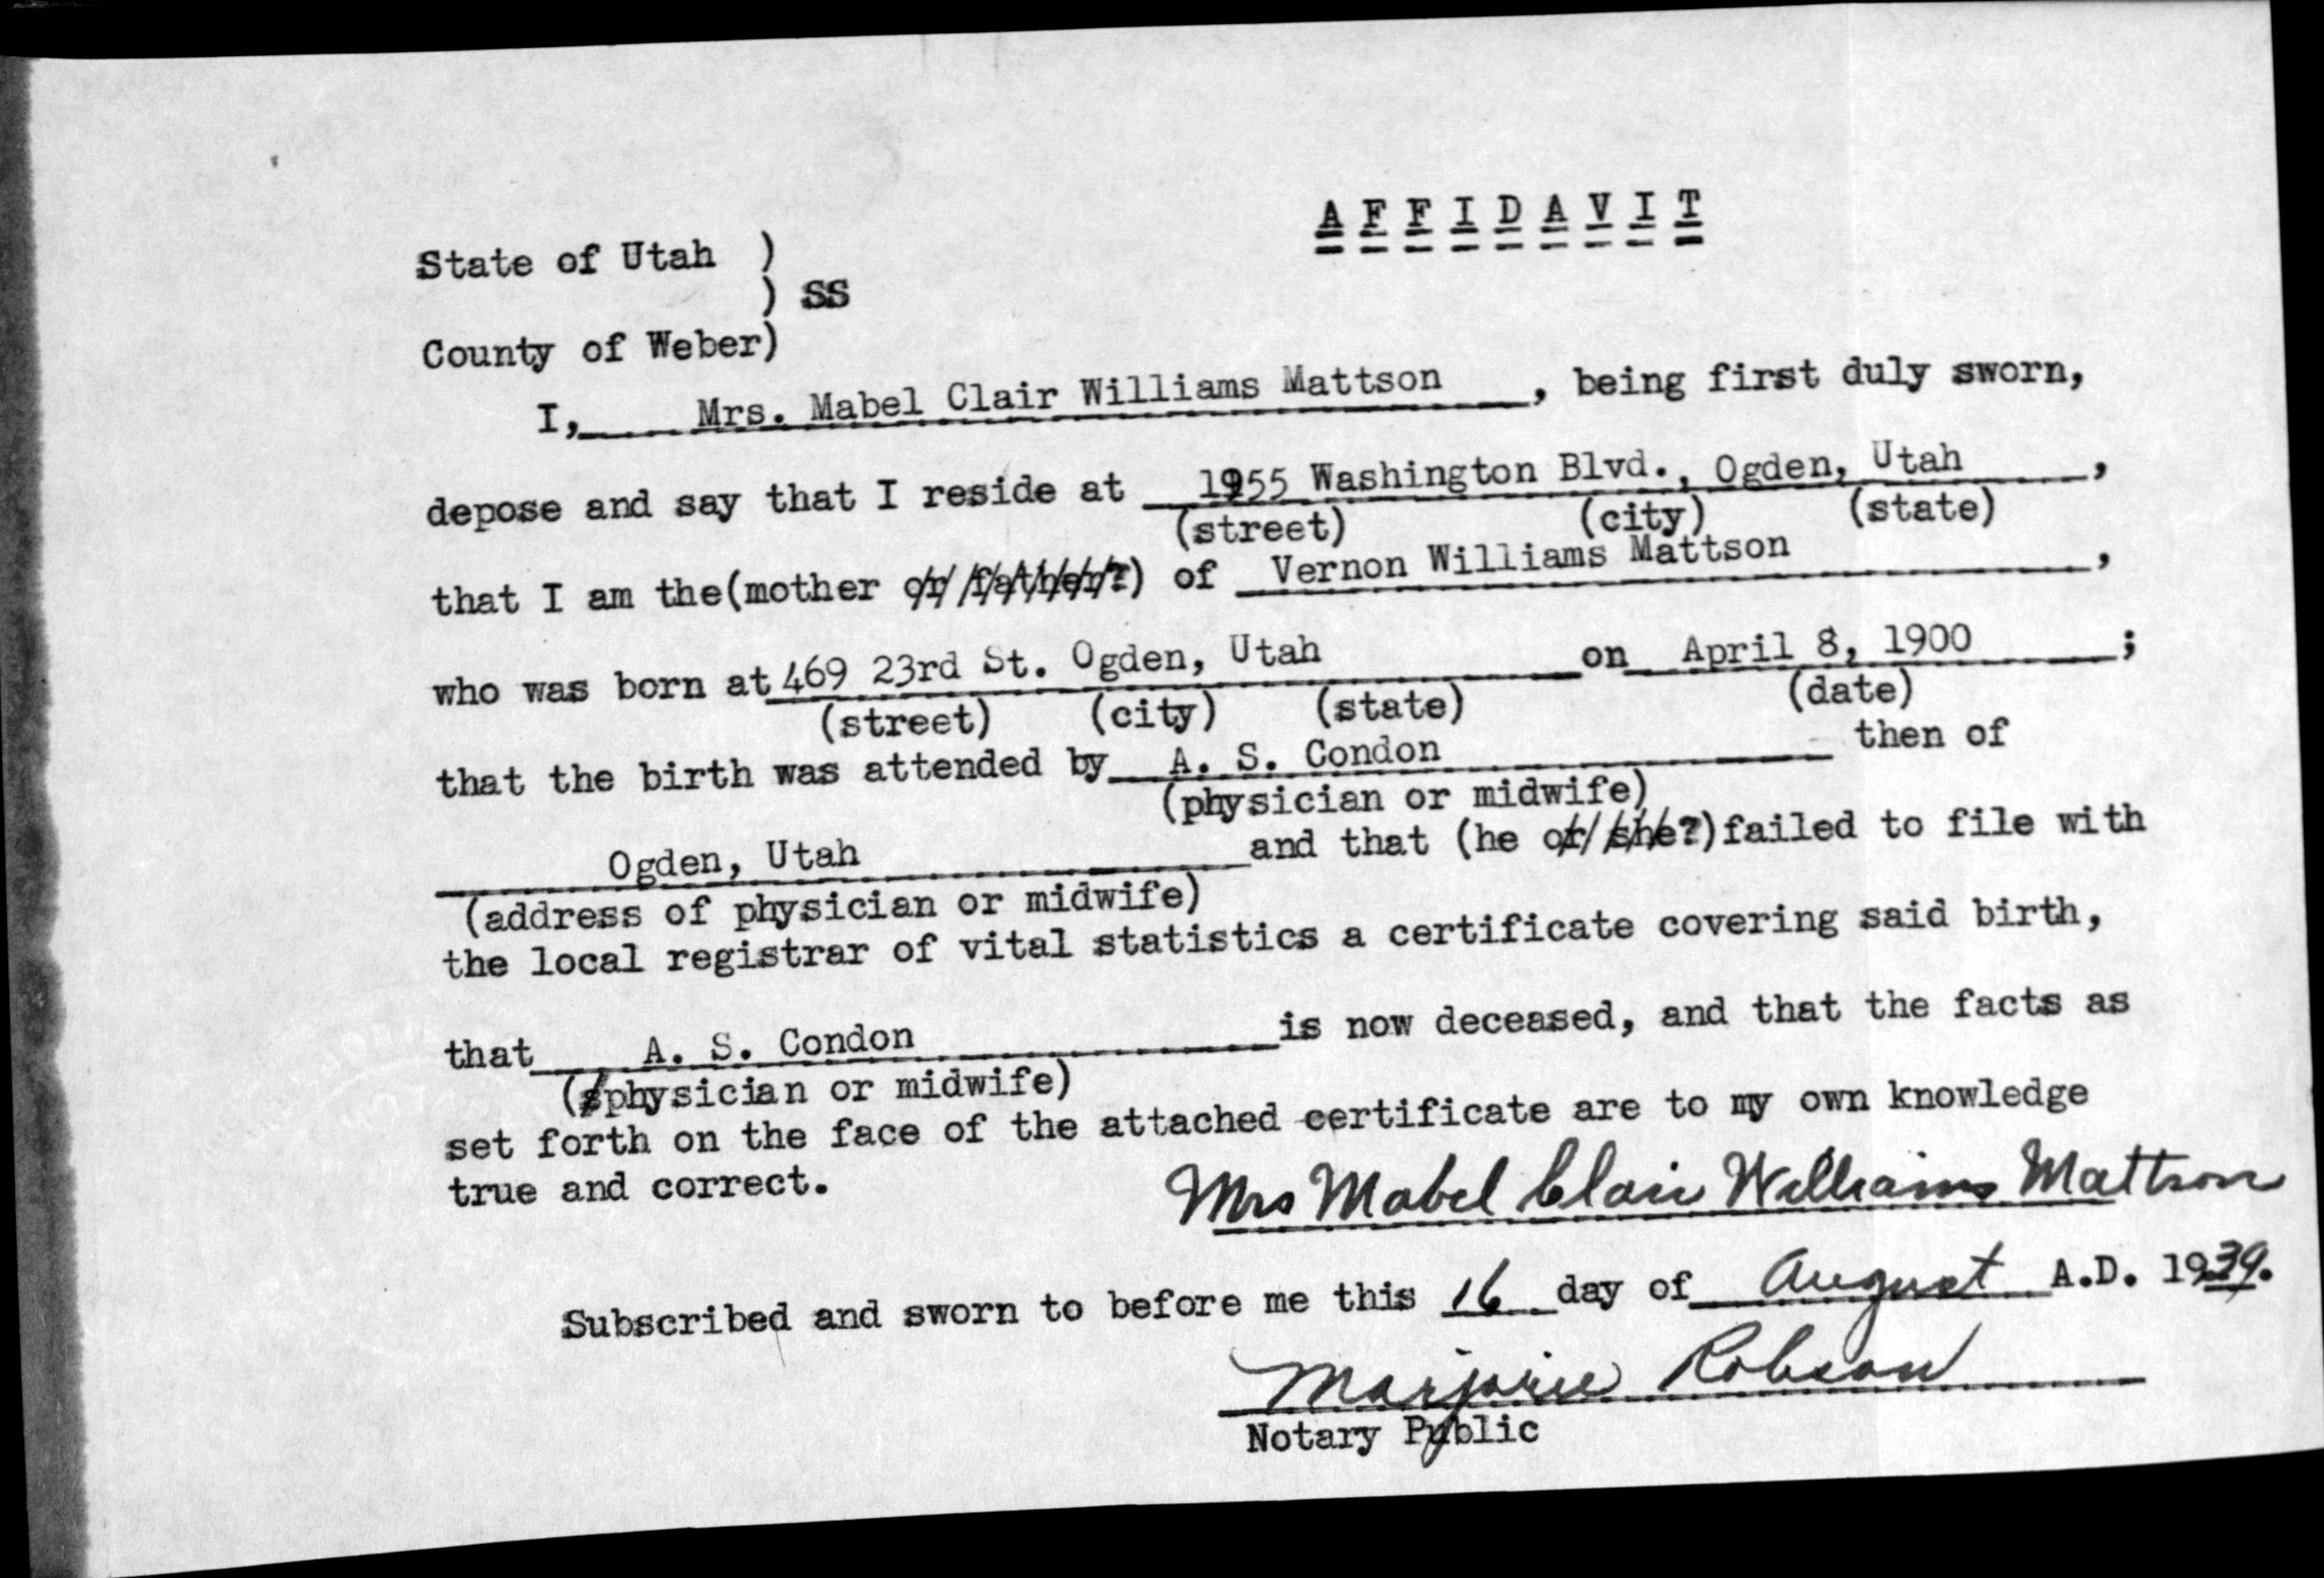 A F F I D A V I T
State of Utah )
) SS
County of Weber)
I, Mrs. Mabel Clair Williams Mattson , being first duly sworn,
depose and say that I reside at 1955 Washington Blvd., Ogden, Utah ,
(street) (city) (state)
that I am the(mother or father?) of Vernon Williams Mattson ,
who was born at 469 23rd St. Ogden, Utah on April 8, 1900 ;
(street) (city) (state) (date)
that the birth was attended by A. S. Condon then of
(physician or midwife)
Ogden, Utah and that (he or she?)failed to file with
(address of physician or midwife)
the local registrar of vital statistics a certificate covering said birth,
that A. S. Condon is now deceased, and that the facts as
(physician or midwife)
set forth on the face of the attached certificate are to my own knowledge
true and correct.
Mrs Mabel Clair Williams Mattson
Subscribed and sworn to before me this 16 day of August A.D. 1939.
Marjorie Robson
Notary Public